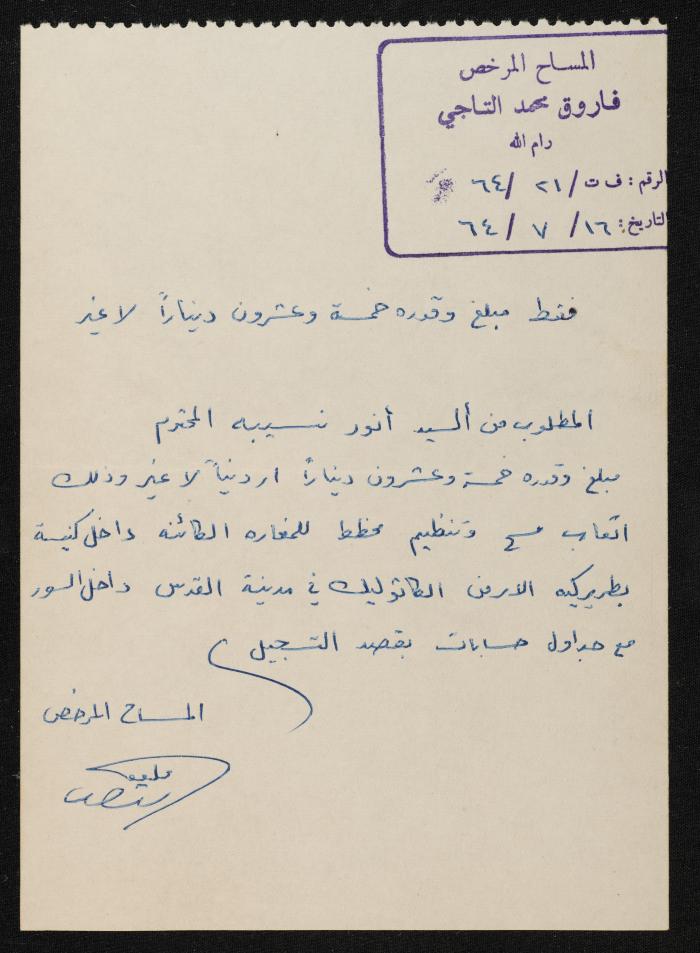 المساح المرخص
فاروق محمد التاجي
رام الله
الرقم: ف ت / ٢١ / ٦٤
التاريخ: ١٦ / ٧ / ٦٤
فقط مبلغ وقدره خمسة وعشرون ديناراً لا غير
المطلوب من السيد أنور نسيبه المحترم
مبلغ وقدره خمسة وعشرون ديناراً اردنياً لا غير وذلك
اتعاب مسح وتنظيم مخطط للمغاره الكائنه داخل كنيسة
بطريركيه الارمن الكاثوليك في مدينة القدس داخل السور
مع جداول حسابات بقصد التسجيل
المساح المرخص